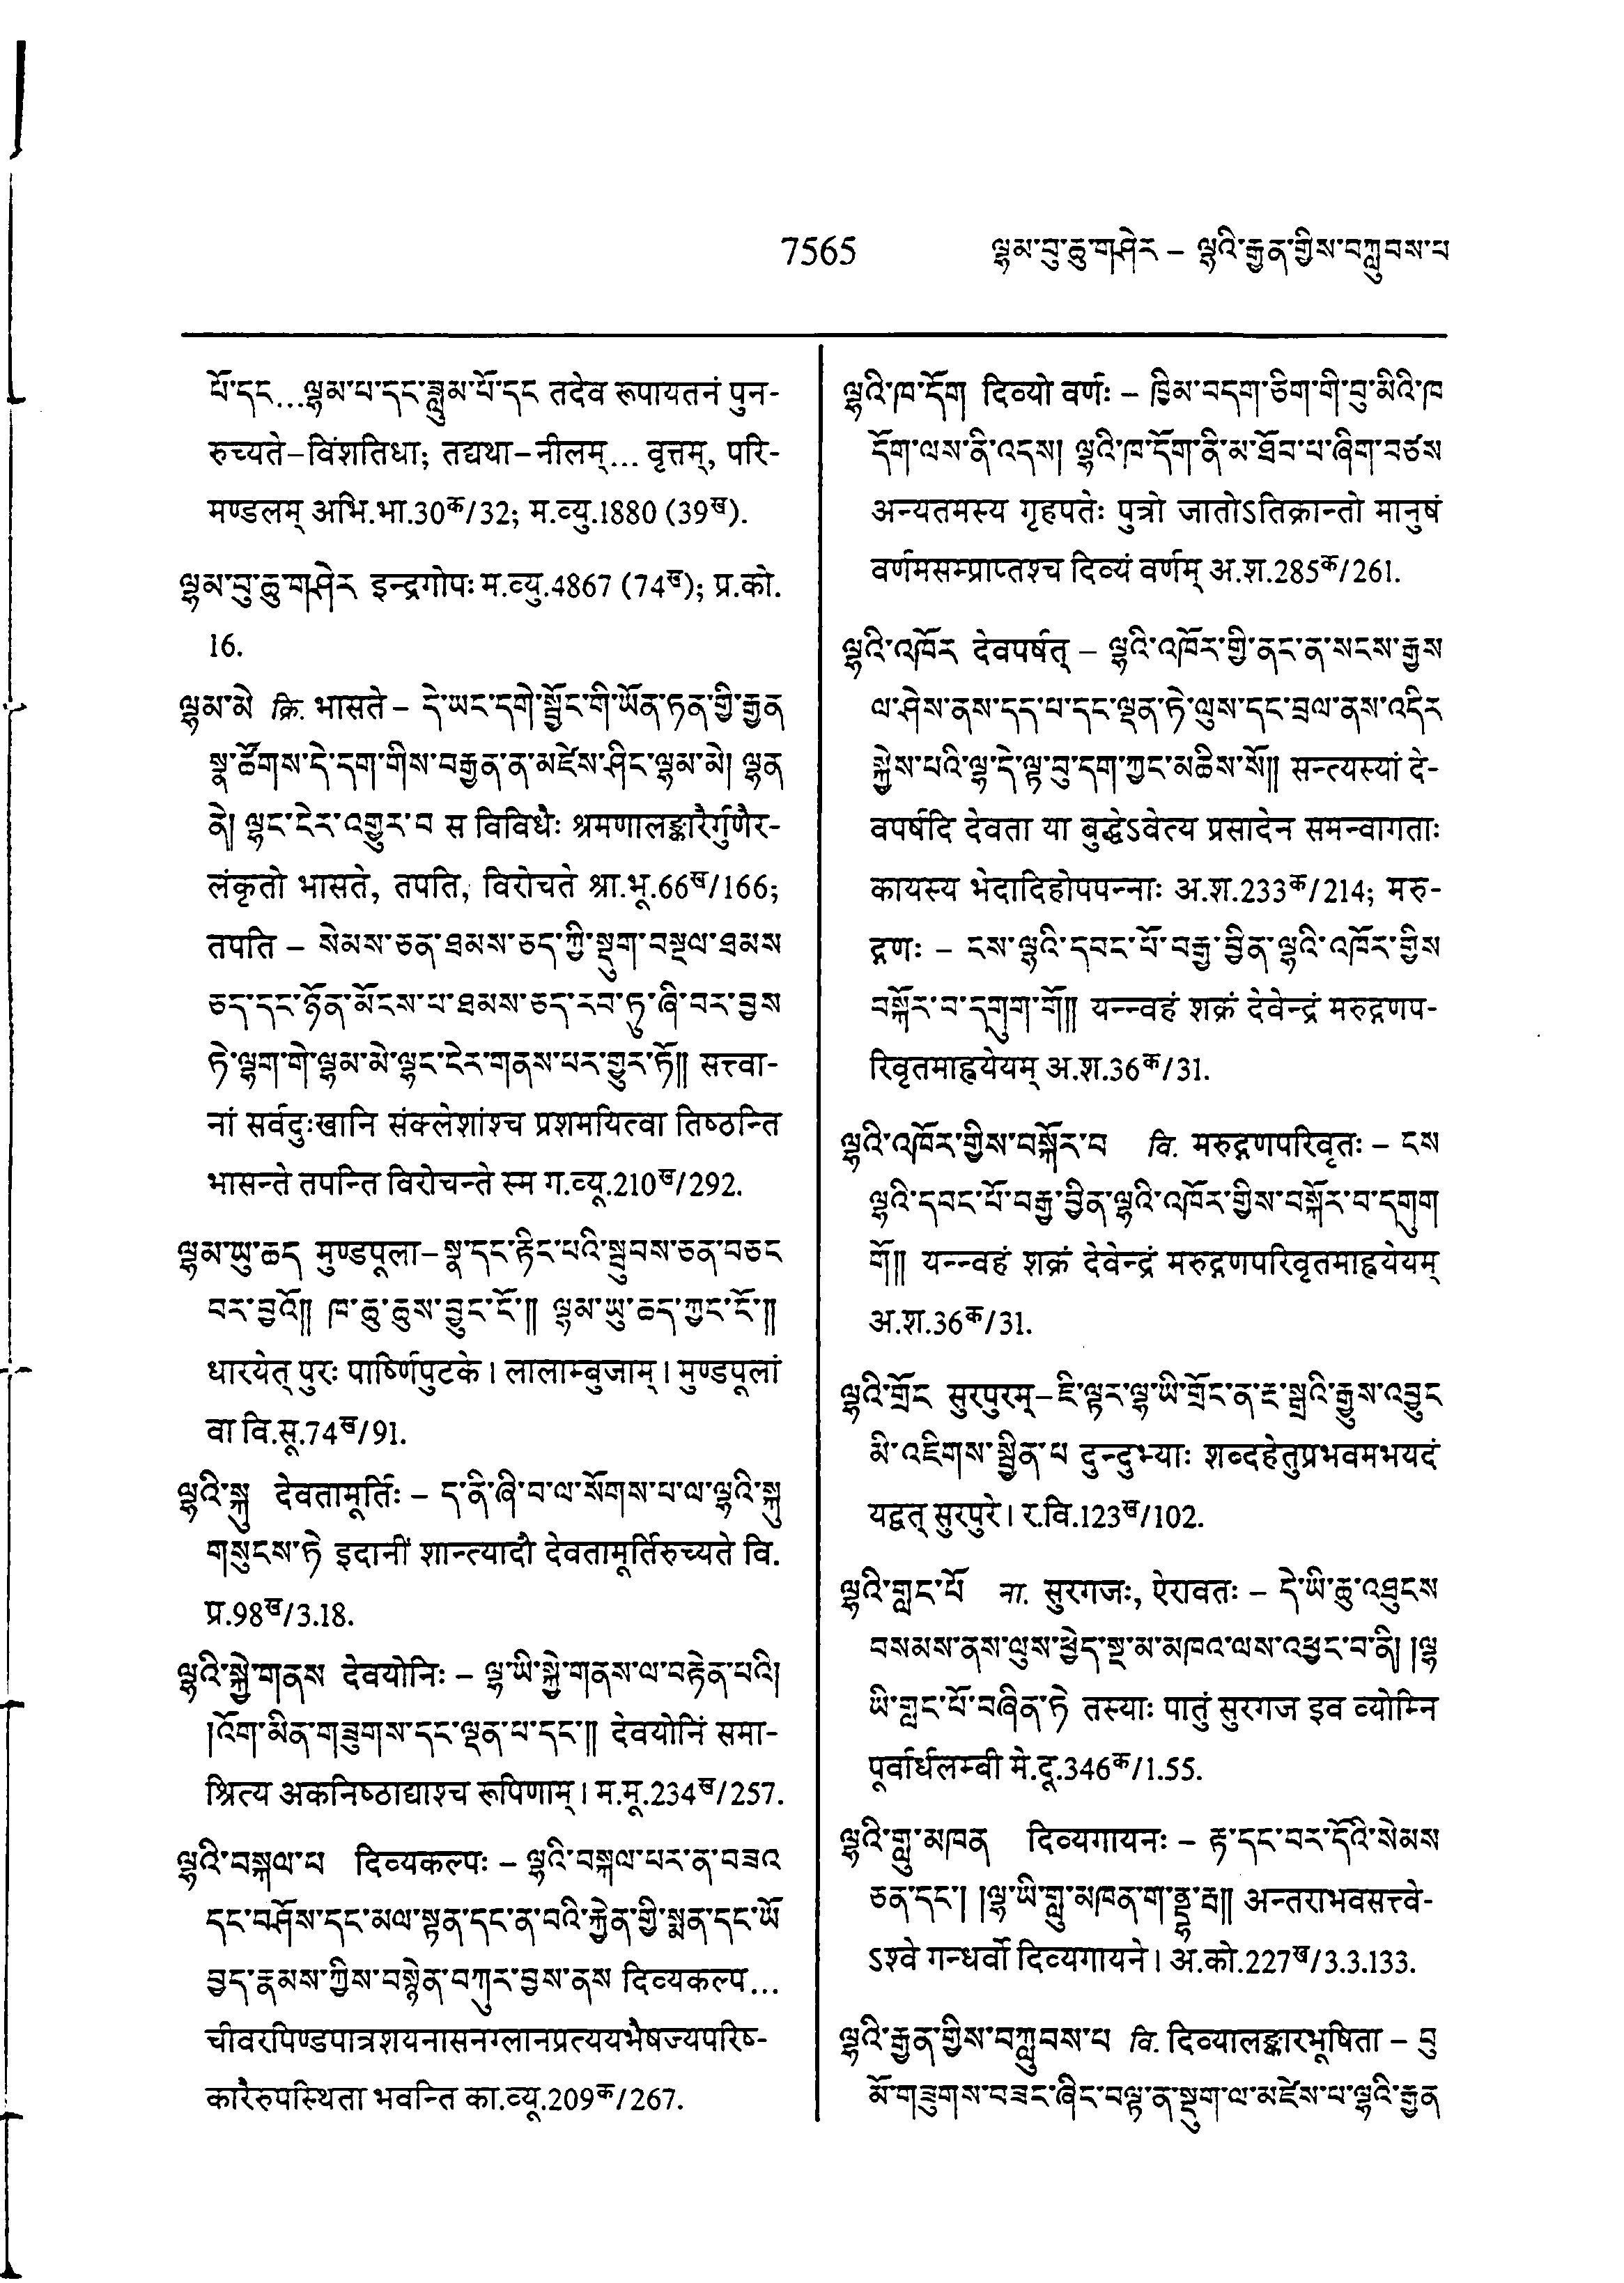 7565 ལྷམ་བུ་ཆུ་གཤེར – ལྷའི་རྒྱན་གྱིས་བཀླུབས་པ
པོ་དང...ལྷམ་པ་དང་ཟླུམ་པོ་དང तदेव रूपायतनं पुन-
रुच्यते–विंशतिधा; तद्यथा–नीलम्... वृत्तम्, परि-
मण्डलम् अभि.भा.30क/32; म.व्यु.1880 (39ख).
ལྷམ་བུ་ཆུ་གཤེར इन्द्रगोपः म.व्यु.4867 (74ख); प्र.को.
16.
ལྷམ་མེ क्रि. भासते – དེ་ཡང་དགེ་སྦྱོང་གི་ཡོན་ཏན་གྱི་རྒྱན
སྣ་ཚོགས་དེ་དག་གིས་བརྒྱན་ན་མཛེས་ཤིང་ལྷམ་མེ། ལྷན
ནེ། ལྷང་ངེར་འགྱུར་བ स विविधैः श्रमणालङ्कारैर्गुणैर-
लंकृतो भासते, तपति, विरोचते श्रा.भू.66ख/166;
तपति – སེམས་ཅན་ཐམས་ཅད་ཀྱི་སྡུག་བསྔལ་ཐམས
ཅད་དང་ཉོན་མོངས་པ་ཐམས་ཅད་རབ་ཏུ་ཞི་བར་བྱས
ཏེ་ལྷག་གེ་ལྷམ་མེ་ལྷང་ངེར་གནས་པར་གྱུར་ཏོ།། सत्त्वा-
नां सर्वदुःखानि संक्लेशांश्च प्रशमयित्वा तिष्ठन्ति
भासन्ते तपन्ति विरोचन्ते स्म ग.व्यू.210ख/292.
ལྷམ་ཡུ་ཆད मुण्डपूला–སྣ་དང་རྟིང་པའི་སྦུབས་ཅན་བཅང
བར་བྱའོ།། ཁ་ཆུ་ཆུས་བྱུང་ངོ་།། ལྷམ་ཡུ་ཆད་ཀྱང་ངོ་།།
धारयेत् पुरः पार्ष्णिपुटके। लालाम्बुजाम्। मुण्डपूलां
वा वि.सू.74ख/91.
ལྷའི་སྐུ देवतामूर्तिः – ད་ནི་ཞི་བ་ལ་སོགས་པ་ལ་ལྷའི་སྐུ
གསུངས་ཏེ इदानीं शान्त्यादौ देवतामूर्तिरुच्यते वि.
प्र.98ख/3.18.
ལྷའི་སྐྱེ་གནས देवयोनिः – ལྷ་ཡི་སྐྱེ་གནས་ལ་བརྟེན་པའི།
།འོག་མིན་གཟུགས་དང་ལྡན་པ་དང་།། देवयोनिं समा-
श्रित्य अकनिष्ठाद्याश्च रूपिणाम्। म.मू.234ख/257.
ལྷའི་བསྐལ་པ दिव्यकल्पः – ལྷའི་བསྐལ་པར་ན་བཟའ
དང་བཤོས་དང་མལ་སྟན་དང་ན་བའི་རྐྱེན་གྱི་སྨན་དང་ཡོ
བྱད་རྣམས་ཀྱིས་བསྙེན་བཀུར་བྱས་ནས दिव्यकल्प...
चीवरपिण्डपात्रशयनासनग्लानप्रत्ययभैषज्यपरिष्-
कारैरुपस्थिता भवन्ति का.व्यू.209क/267.
ལྷའི་ཁ་དོག दिव्यो वर्णः – ཁྱིམ་བདག་ཅིག་གི་བུ་མིའི་ཁ
དོག་ལས་ནི་འདས། ལྷའི་ཁ་དོག་ནི་མ་ཐོབ་པ་ཞིག་བཙས
अन्यतमस्य गृहपतेः पुत्रो जातोऽतिक्रान्तो मानुषं
वर्णमसम्प्राप्तश्च दिव्यं वर्णम् अ.श.285क/261.
ལྷའི་འཁོར देवपर्षत् – ལྷའི་འཁོར་གྱི་ནང་ན་སངས་རྒྱས
ལ་ཤེས་ནས་དད་པ་དང་ལྡན་ཏེ་ལུས་དང་བྲལ་ནས་འདིར
སྐྱེས་པའི་ལྷ་དེ་ལྟ་བུ་དག་ཀྱང་མཆིས་སོ།། सन्त्यस्यां दे-
वपर्षदि देवता या बुद्धेऽवेत्य प्रसादेन समन्वागताः
कायस्य भेदादिहोपपन्नाः अ.श.233क/214; मरु-
द्गणः – ངས་ལྷའི་དབང་པོ་བརྒྱ་བྱིན་ལྷའི་འཁོར་གྱིས
བསྐོར་བ་དགུག་གོ།། यन्न्वहं शक्रं देवेन्द्रं मरुद्गणप-
रिवृतमाह्वयेयम् अ.श.36क/31.
ལྷའི་འཁོར་གྱིས་བསྐོར་བ वि. मरुद्गणपरिवृतः – ངས
ལྷའི་དབང་པོ་བརྒྱ་བྱིན་ལྷའི་འཁོར་གྱིས་བསྐོར་བ་དགུག
གོ།། यन्न्वहं शक्रं देवेन्द्रं मरुद्गणपरिवृतमाह्वयेयम्
अ.श.36क/31.
ལྷའི་གྲོང सुरपुरम्–ཇི་ལྟར་ལྷ་ཡི་གྲོང་ན་རྔ་སྒྲའི་རྒྱུས་འབྱུང
མི་འཇིགས་སྦྱིན་པ दुन्दुभ्याः शब्दहेतुप्रभवमभयदं
यद्वत् सुरपुरे। र.वि.123ख/102.
ལྷའི་གླང་པོ ना. सुरगजः, ऐरावतः – དེ་ཡི་ཆུ་འཐུངས
བསམས་ནས་ལུས་ཕྱེད་སྔ་མ་མཁའ་ལས་འཕྱང་བ་ནི། །ལྷ
ཡི་གླང་པོ་བཞིན་ཏེ तस्याः पातुं सुरगज इव व्योम्नि
पूर्वार्धलम्बी मे.दू.346क/1.55.
ལྷའི་གླུ་མཁན दिव्यगायनः – རྟ་དང་བར་དོའི་སེམས
ཅན་དང་། །ལྷ་ཡི་གླུ་མཁན་ག་ནྡྷ་རྦ།། अन्तराभवसत्त्वे-
ऽश्वे गन्धर्वो दिव्यगायने। अ.को.227ख/3.3.133.
ལྷའི་རྒྱན་གྱིས་བཀླུབས་པ वि. दिव्यालङ्कारभूषिता – བུ
མོ་གཟུགས་བཟང་ཞིང་བལྟ་ན་སྡུག་ལ་མཛེས་པ་ལྷའི་རྒྱན